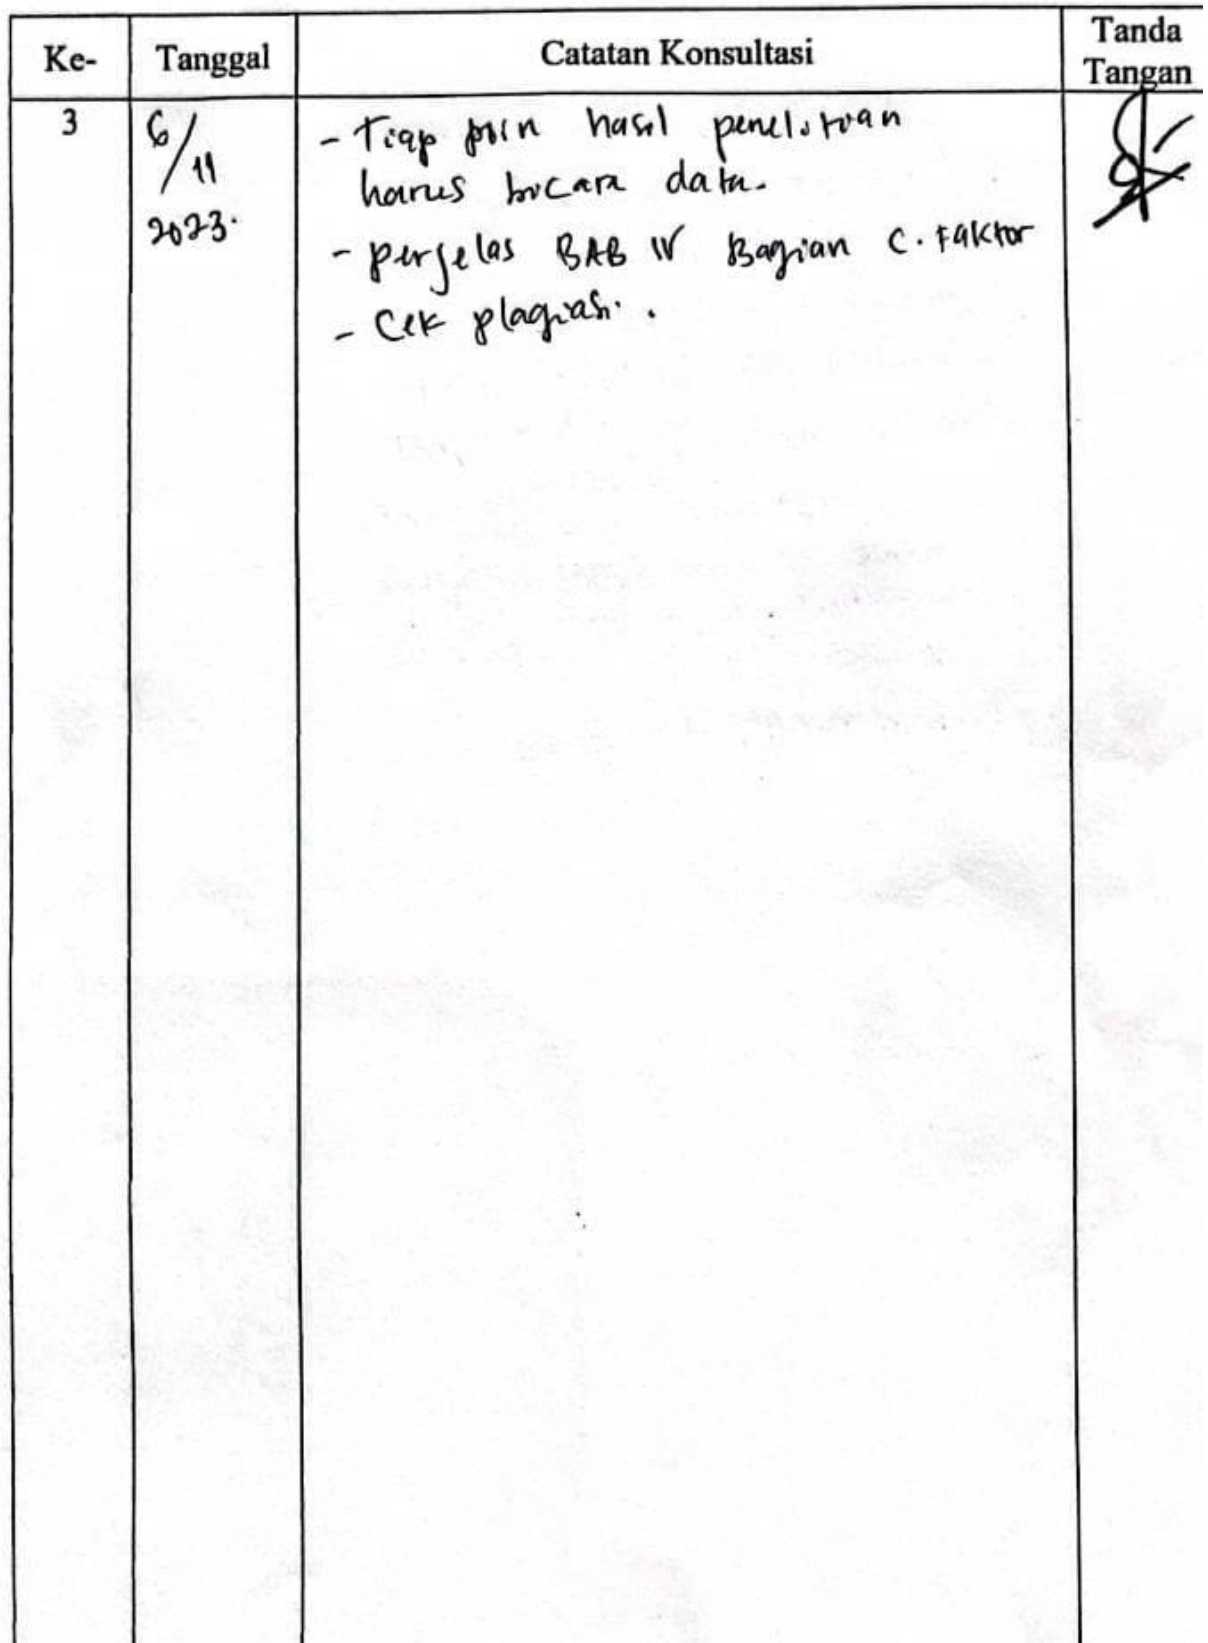 Ke- Tanggal Catatan Konsultasi Tanda Tangan
3 6/11 2023.
- Tiap poin hasil penelitian
harus bicara data.
- perjelas BAB IV Bagian C. Faktor
- Cek plagiasi.